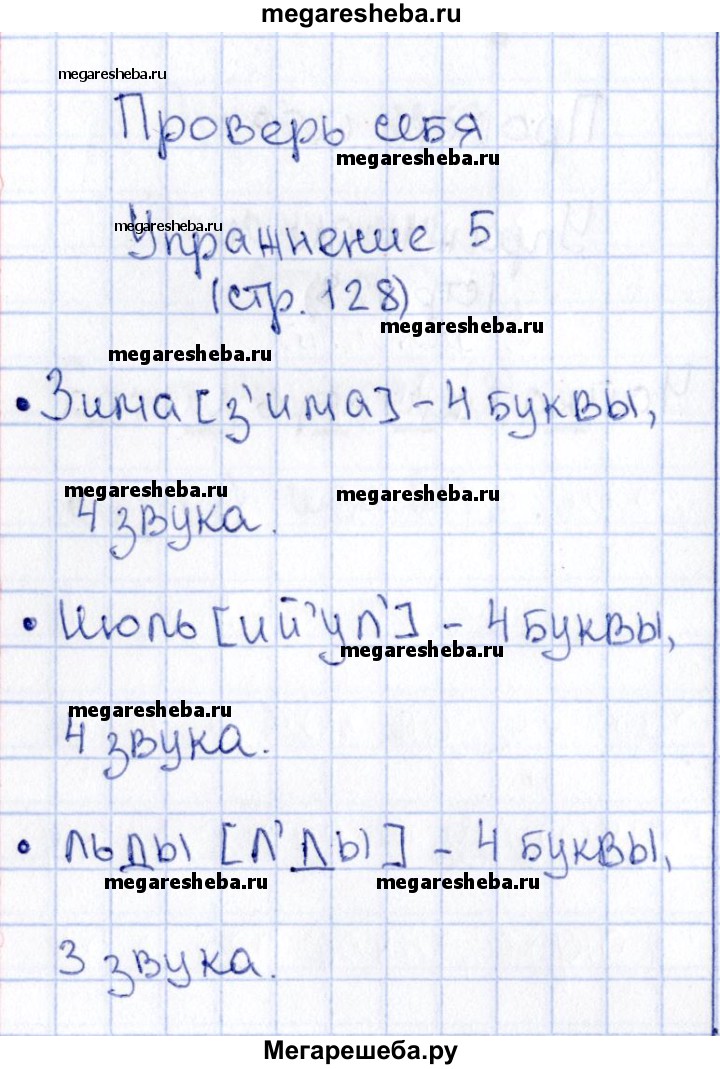 megaresheba.ru
megaresheba.ru
Проверь себя
megaresheba.ru
megaresheba.ru
Упражнение 5
(стр. 128)
megaresheba.ru
megaresheba.ru
• Зима [з'има] - 4 буквы,
megaresheba.ru megaresheba.ru
4 звука.
• Июль [ий'ул'] - 4 буквы,
megaresheba.ru
megaresheba.ru
4 звука.
• льды [л'ды] - 4 буквы,
megaresheba.ru megaresheba.ru
3 звука.
Мегарешеба.ру